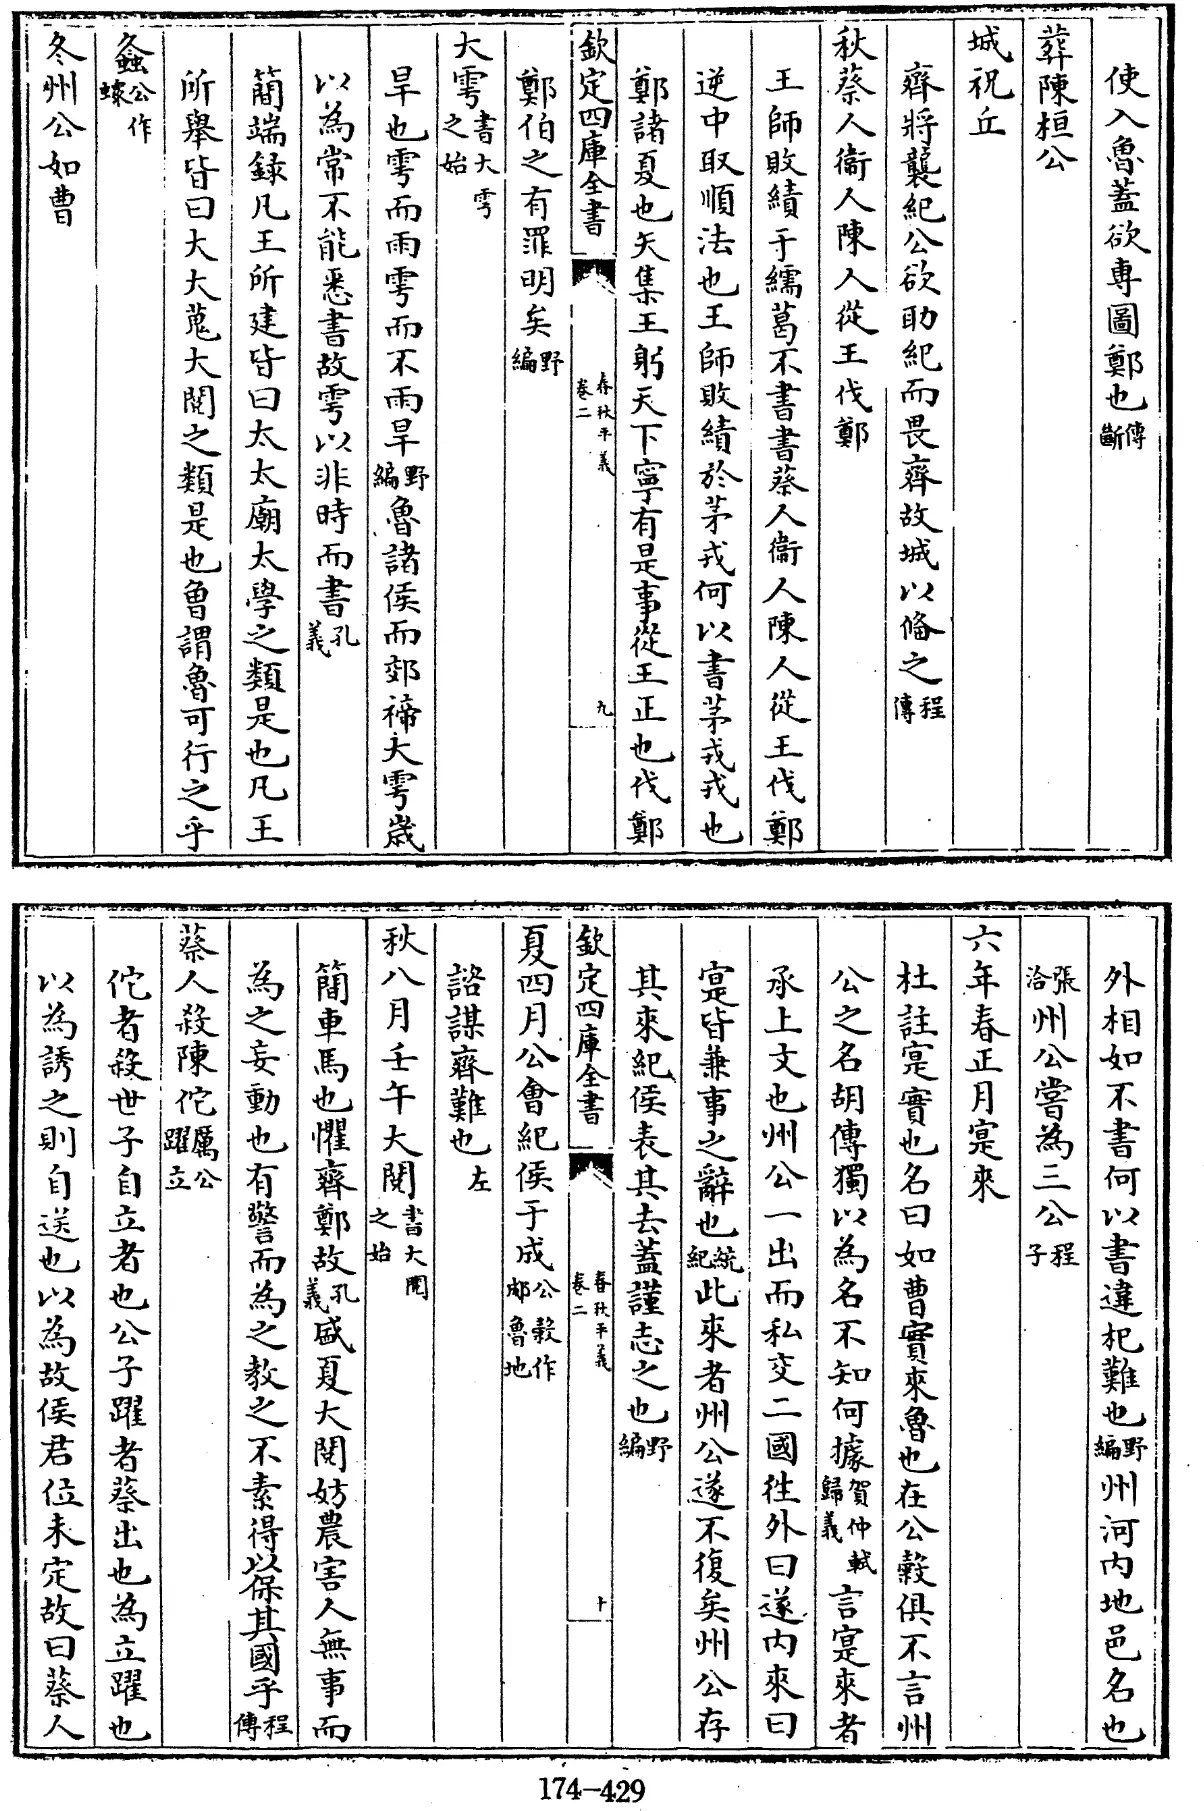 使入魯蓋欲専圖鄭也傳斷
葬陳桓公
城祝丘
齊將襲紀公欲助紀而畏齊故城以備之程傳
秋蔡人衞人陳人從王伐鄭
王師敗績于繻葛不書書蔡人衞人陳人從王伐鄭
逆中取順法也王師敗績於茅戎何以書茅戎戎也
鄭諸夏也矢集王躬天下寧有是事從王正也伐鄭
欽定四庫全書
春秋平義
卷二
九
鄭伯之有罪明矣野編
大雩書大雩之始
旱也雩而雨雩而不雨旱野編魯諸侯而郊禘大雩嵗
以為常不能悉書故雩以非時而書孔義
簡端録凡王所建皆曰太太廟太學之類是也凡王
所舉皆曰大大蒐大閱之類是也魯謂魯可行之乎
螽公作蟓
冬州公如曹
外相如不書何以書違杞難也野編州河内地邑名也
張洽州公嘗為三公程子
六年春正月寔來
杜註寔實也名曰如曹實來魯也在公穀俱不言州
公之名胡傳獨以為名不知何據賀仲軾歸義言寔來者
承上文也州公一出而私交二國徃外曰遂内來曰
寔皆兼事之辭也統紀此來者州公遂不復矣州公存
其來紀侯表其去蓋謹志之也野編
欽定四庫全書
春秋平義
卷二
十
夏四月公會紀侯于成公穀作郕魯地
諮謀齊難也左
秋八月壬午大閱書大閱之始
簡車馬也懼齊鄭故孔義盛夏大閱妨農害人無事而
為之妄動也有警而為之教之不素得以保其國乎程傳
蔡人殺陳佗厲公躍立
佗者殺世子自立者也公子躍者蔡出也為立躍也
以為誘之則自送也以為故侯君位未定故曰蔡人
174-429